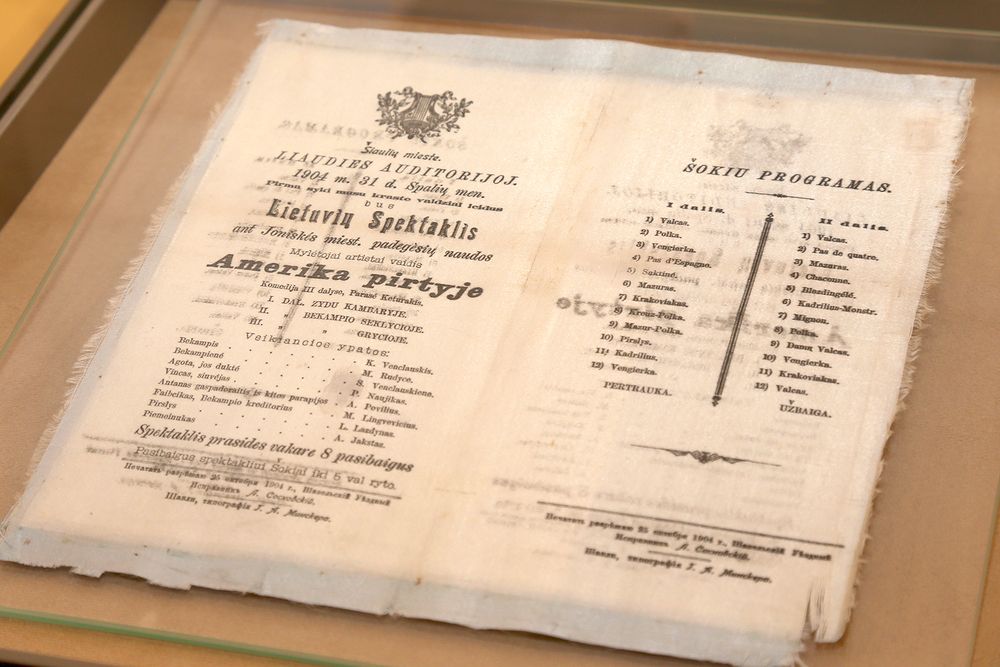 Šiaulių mieste.
LIAUDIES AUDITORIJOJ.
1904 m. 31 d. Spalių men.
Pirmą sykį musu krašto valdziai leidus
bus
Lietuvių Spektaklis
ant Joniškės miest. padegėsių naudos
Mylėtojai artistai vaidįs
Amerika pirtyje
Komedija III dalyse, Parašė Keturakis.
I. DAL. ZYDU KAMBARYJE.
II. „ BEKAMPIO SEKLYCIOJE.
III. „ „ GRYCIOJE.
Veikjancios ypatos:
Bekampis . . . . . K. Venclauskis.
Bekampienė . . . . . M. Rudyce.
Agota, jos duktė . . . . . S. Venclauskiene.
Vincas, sinvėjas . . . . . P. Naujikas.
Antanas gaspadoraitis is kitos parapijos . A. Povilius.
Faibcikas, Bekampio kreditorius . . . M. Lingrevicius.
Pirslys . . . . . L. Lazdynas.
Piemeinukas . . . . . A. Jakstas.
Spektaklis prasidės vakare 8 pasibaigus
Pasibaigus spektakliui Šokiai iki 5 val ryto.
Печатать разрѣшаю 25 октября 1904 г., Шавельскій Уѣздный
Исправникъ А. Сосновскій.
Шавли, типографія І. А. Минскера.
ŠOKIU PROGRAMAS.
I dalis.
1) Valcas.
2) Polka.
3) Vengierka.
4) Pas d'Espagne.
5) Suktinė.
6) Mazuras.
7) Krakoviakas.
8) Kreuz-Polka.
9) Mazur-Polka.
10) Pirslys.
11) Kadrilius.
12) Vengierka.
PERTRAUKA.
II dalis.
1) Valcas.
2) Pas de quatre.
3) Mazuras.
4) Chaconne.
5) Blezdingėlė.
6) Kadrilius-Monstr.
7) Mignon.
8) Polka.
9) Damų Valcas.
10) Vengierka.
11) Krakoviakas.
12) Valcas.
UŽBAIGA.
Печатать разрѣшаю 25 октября 1904 г., Шавельскій Уѣздный
Исправникъ А. Сосновскій.
Шавли, типографія І. А. Минскера.